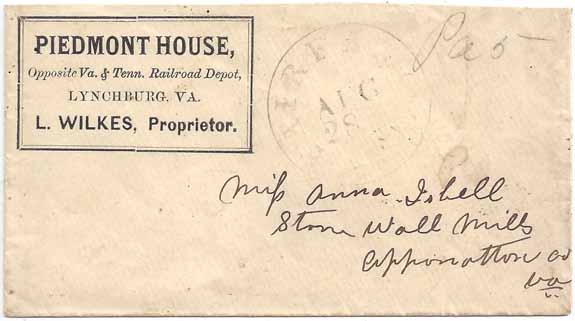 PIEDMONT HOUSE,
Opposite Va. & Tenn. Railroad Depot,
LYNCHBURG, VA.
L. WILKES, Proprietor.
AUG
28
Pa 5
Miss Anna Isbell
Stone Wall Mills
Appomattox Co
Va